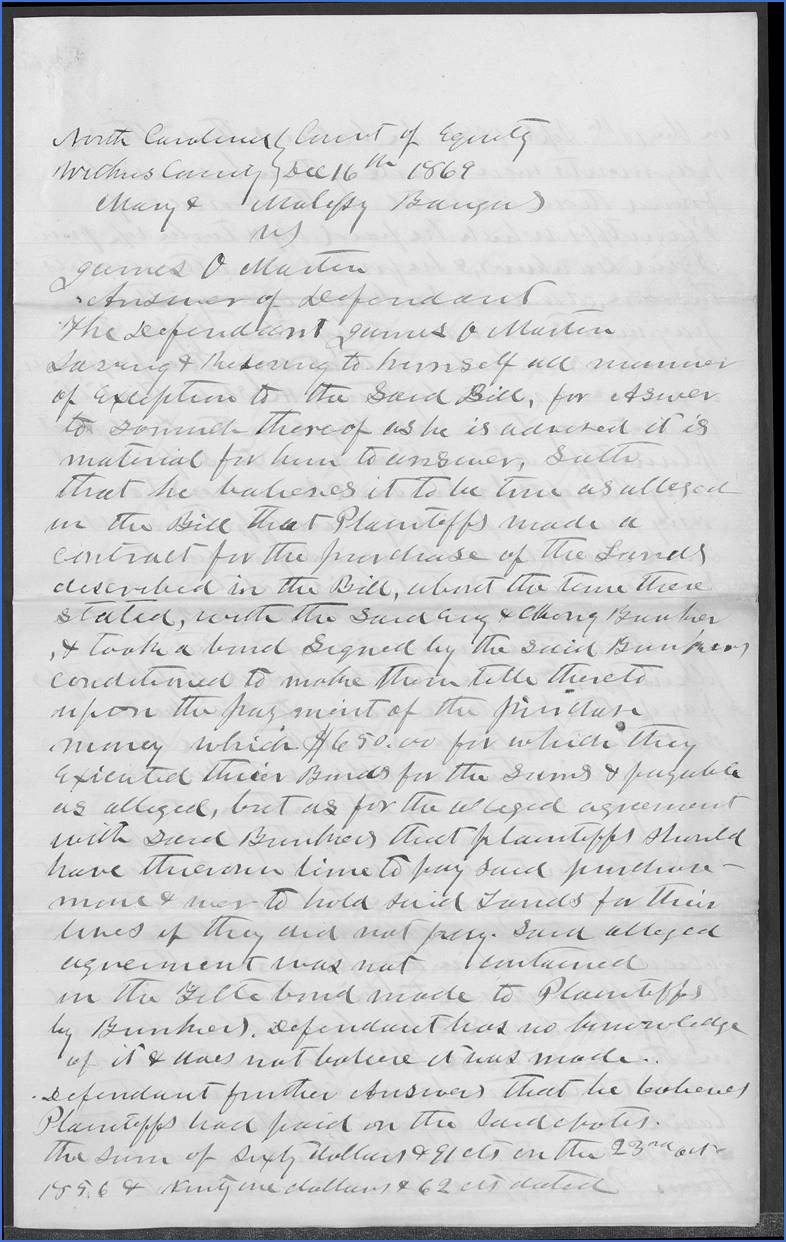 North Carolina } Court of Equity
Wilkes County } Dec 16th 1869
Mary & Malissy Baugus
vs
James O Martin
Answer of Defendant
The Defendant James O Martin
Saving & Reserving to himself all manner
of Exception to the Said Bill, for Aswer
to somuch thereof as he is advised it is
material for him to answer, Saith
that he believes it to be true as alleged
in the Bill that Plaintiffs made a
contract for the purchase of the Lands
described in the Bill, about the time there
stated, with the Said Eng & Chang Bunker
, & took a bond Signed by the Said Bunkers
conditioned to make them title thereto
upon the payment of the purchase
money which $650.00 for which they
Executed their Bonds for the Sums & payable
as alleged, but as for the alleged agreement
with Said Bunkers that plaintiffs should
have their own time to pay said purchase
mone & to hold said Lands for their
lives if they did not pay. Said alleged
agreement was not contained
in the Title bond made to Plaintiffs
by Bunkers. Defendant has no knowledge
of it & does not believe it was made.
Defendant further Answers that he believes
Plaintiffs had paid on the Said notes.
the Sum of Sixty dollars & 91 cts on the 23rd oct
1856 & Ninty one dollars & 62 cts dated